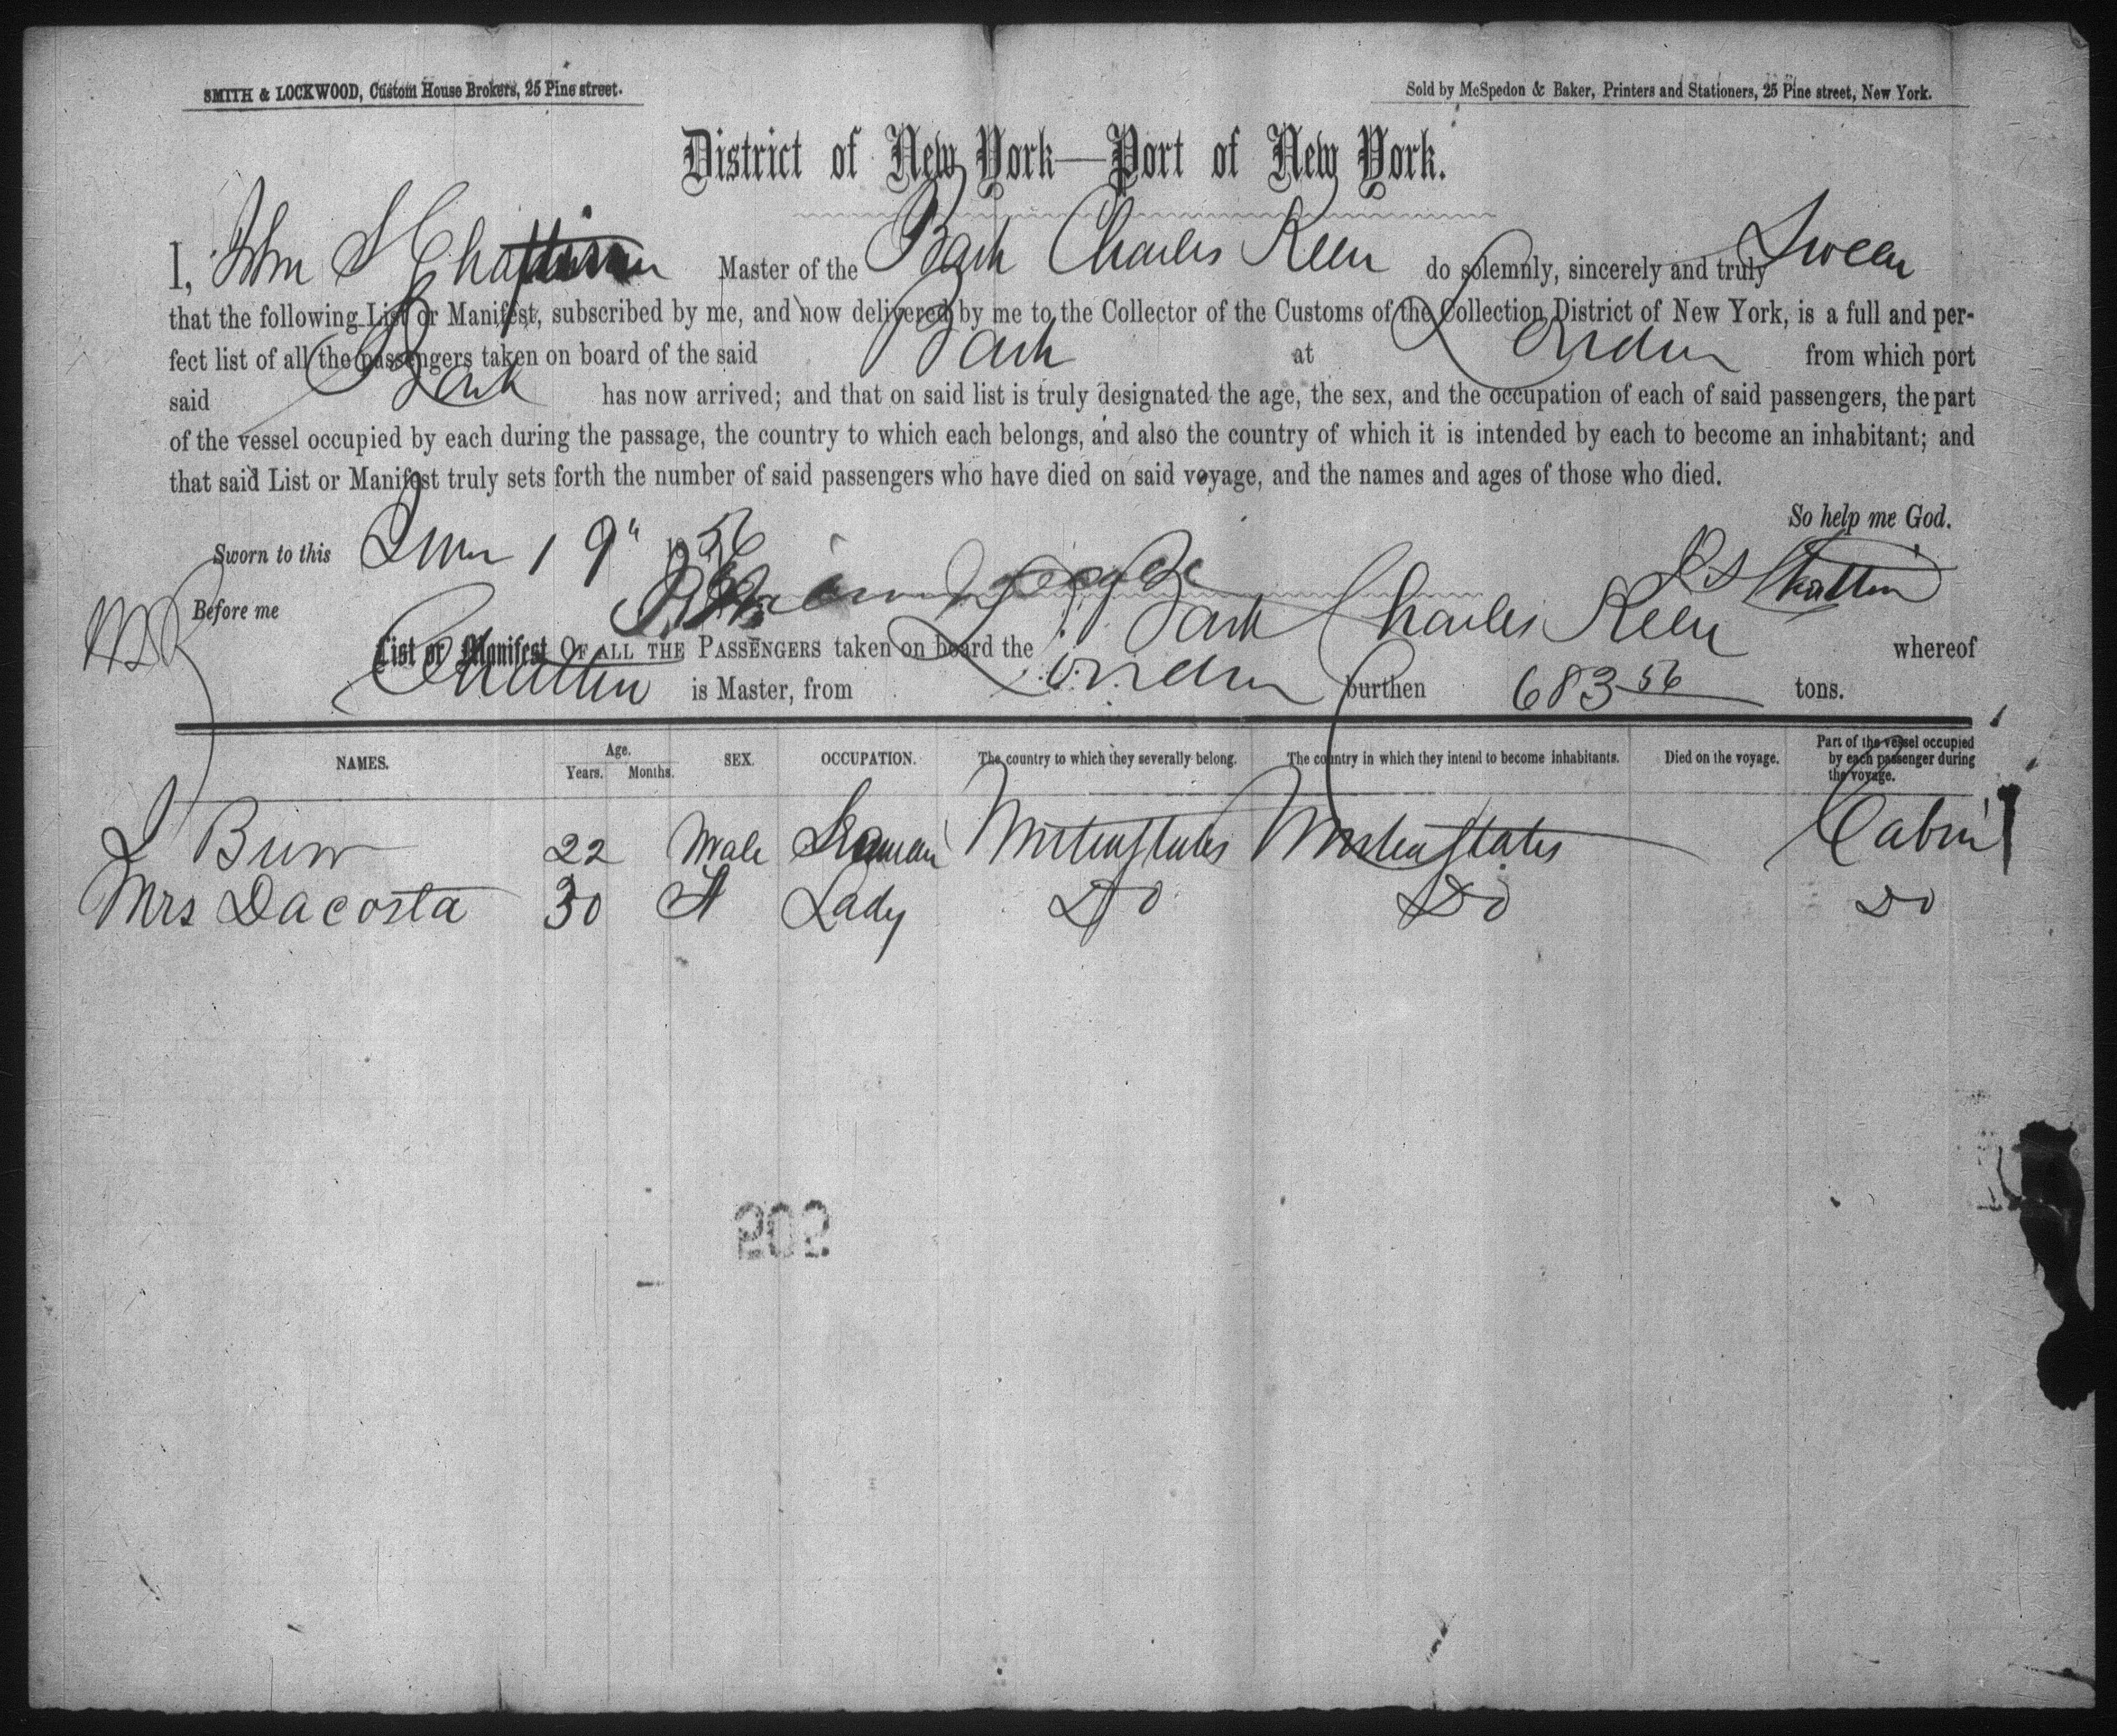 SMITH & LOCKWOOD, Custom House Brokers, 25 Pine street.
Sold by McSpedon & Baker, Printers and Stationers, 25 Pine street, New York.
District of New York—Port of New York.
I, John S Master of the Bark Charles Keen do solemnly, sincerely and truly Swear
that the following List or Manifest, subscribed by me, and now delivered by me to the Collector of the Customs of the Collection District of New York, is a full and per-
fect list of all the passengers taken on board of the said Bark at London from which port
said Bark has now arrived; and that on said list is truly designated the age, the sex, and the occupation of each of said passengers, the part
of the vessel occupied by each during the passage, the country to which each belongs, and also the country of which it is intended by each to become an inhabitant; and
that said List or Manifest truly sets forth the number of said passengers who have died on said voyage, and the names and ages of those who died.
So help me God.
Sworn to this June 19" 1856
Before me
List or Manifest OF ALL THE PASSENGERS taken on board the Bark Charles Keen whereof
is Master, from London burthen 683 56 tons.
NAMES. Age. Years. Months. SEX. OCCUPATION. The country to which they severally belong. The country in which they intend to become inhabitants. Died on the voyage. Part of the vessel occupied by each passenger during the voyage.
22 Male Seaman United States United States Cabin
Mrs Dacosta 30 Lady Do Do Do
202